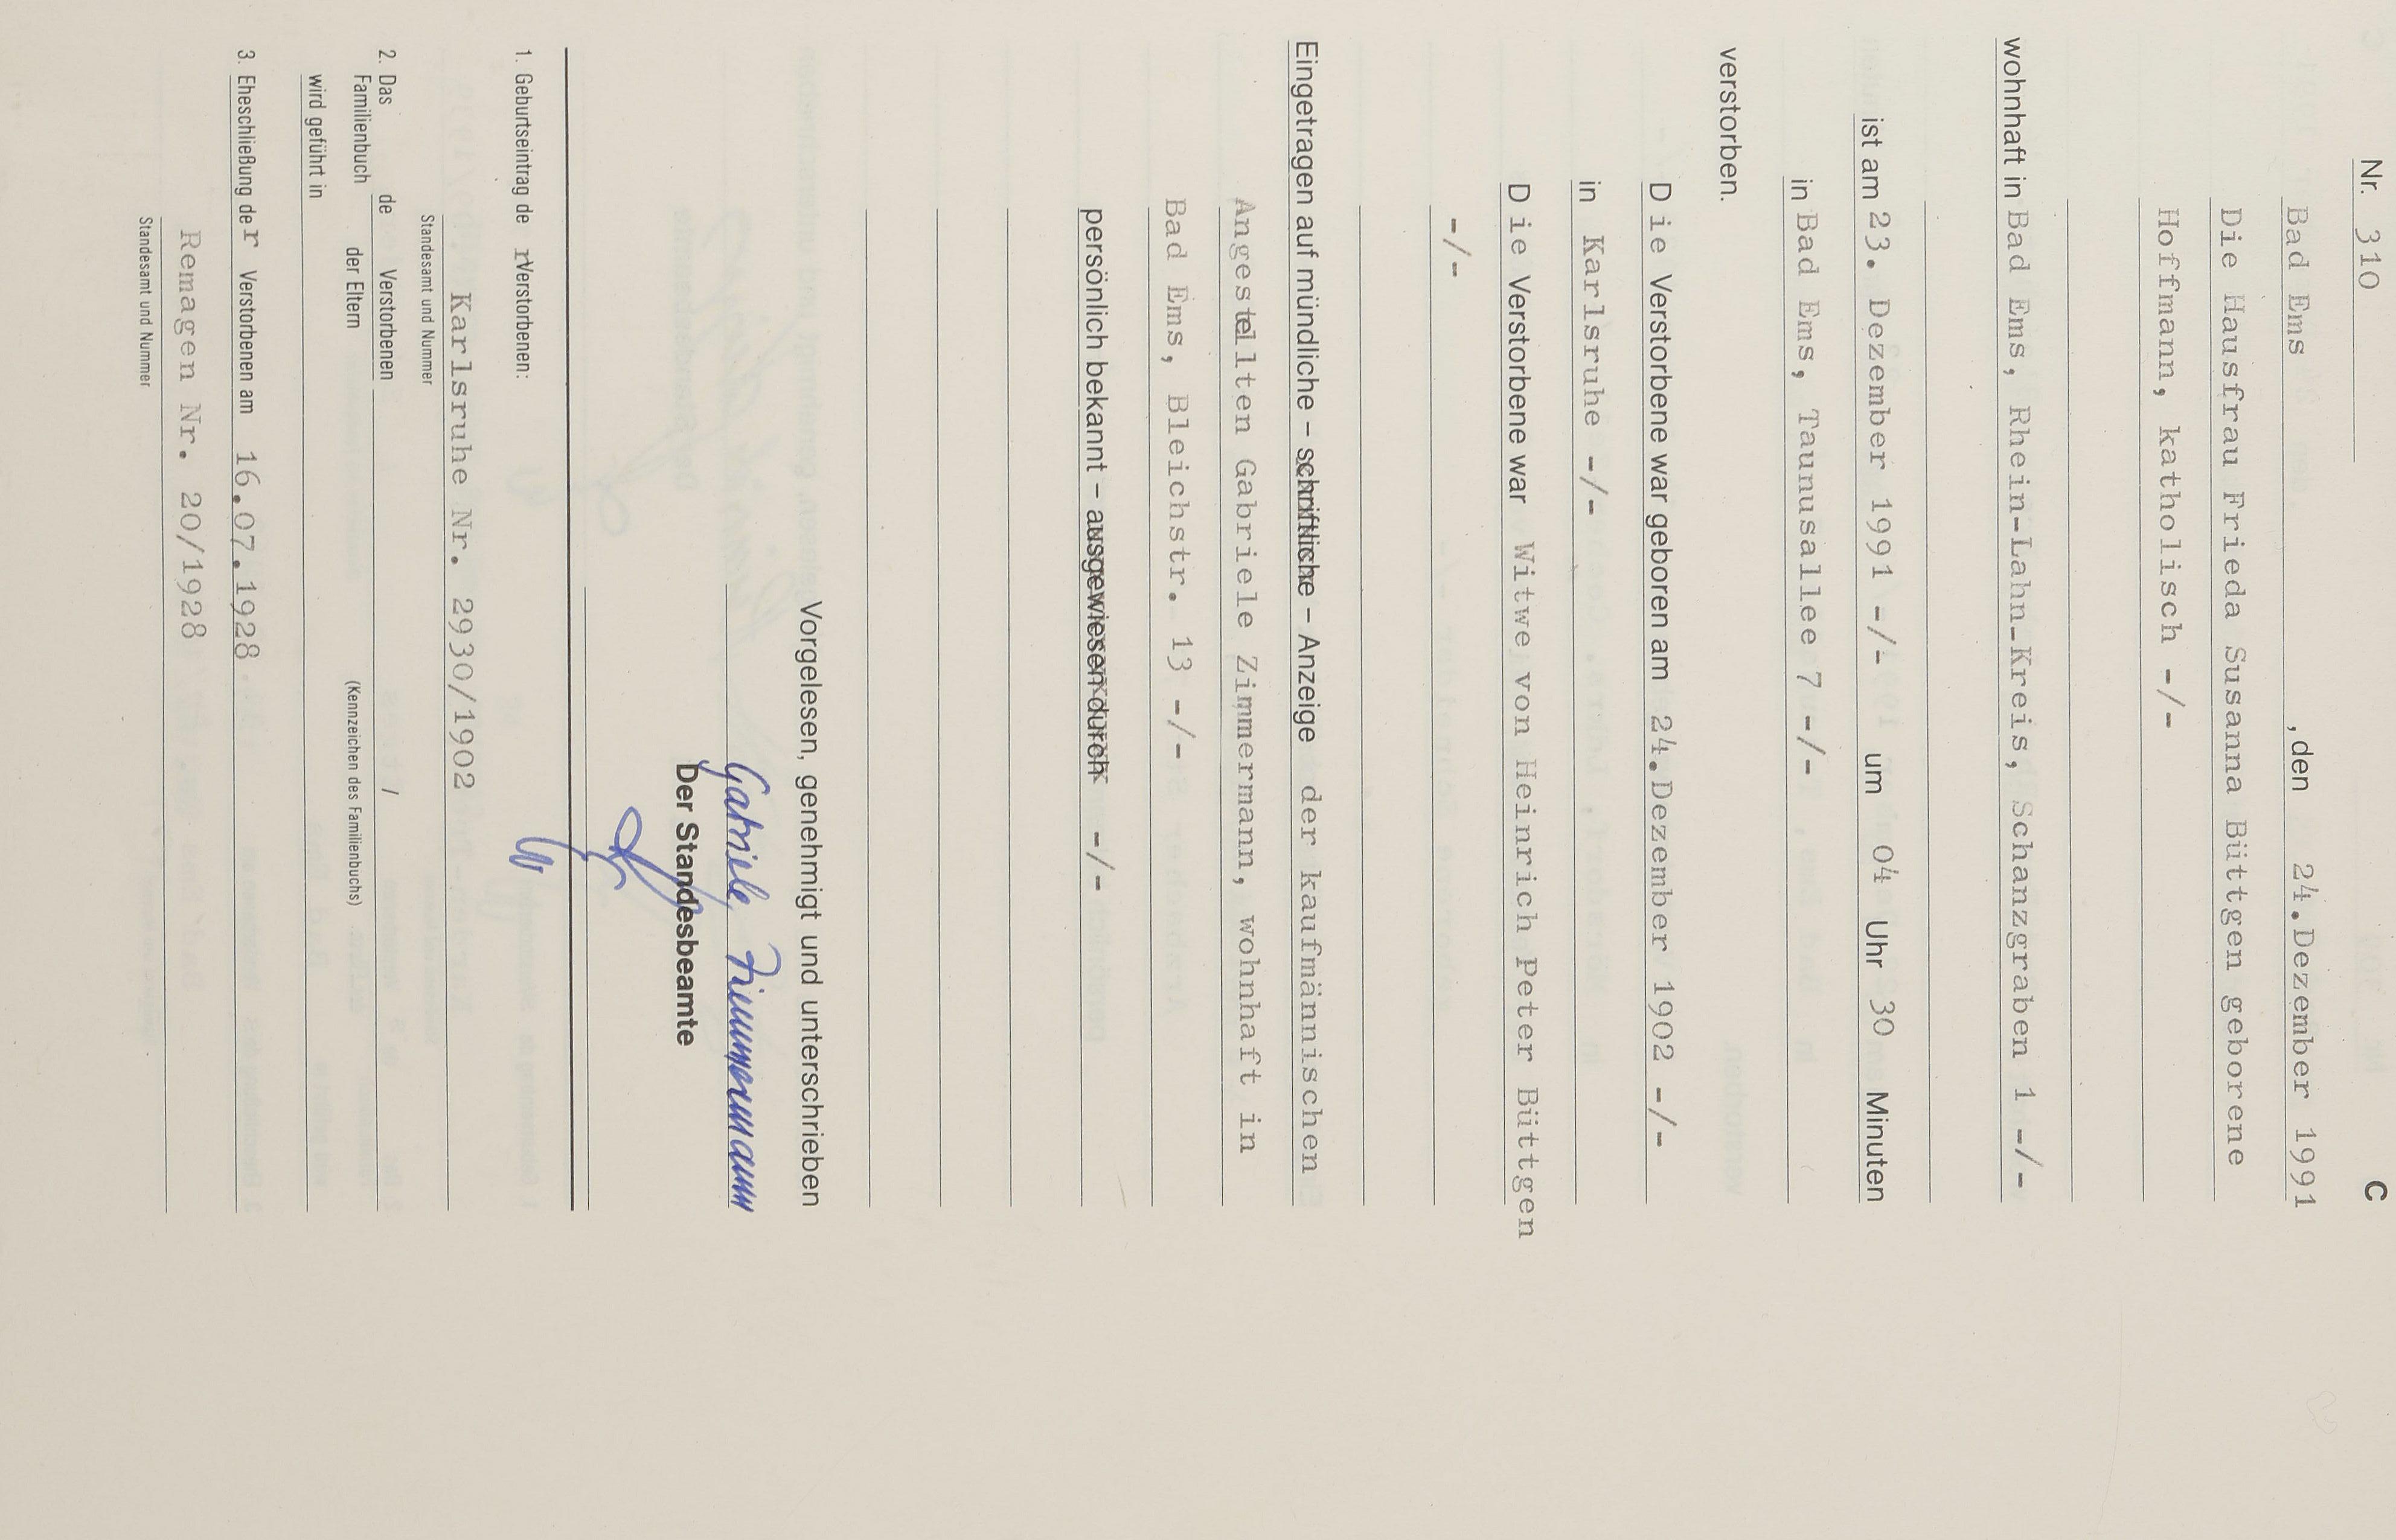 Nr. 310 C
Bad Ems, den 24.Dezember 1991
Die Hausfrau Frieda Susanna Büttgen geborene
Hoffmann, katholisch -/-
wohnhaft in Bad Ems, Rhein-Lahn-Kreis, Schanzgraben 1 -/-
ist am 23. Dezember 1991 -/- um 04 Uhr 30 Minuten
in Bad Ems, Taunusallee 7 -/-
verstorben.
Die Verstorbene war geboren am 24.Dezember 1902 -/-
in Karlsruhe -/-
Die Verstorbene war Witwe von Heinrich Peter Büttgen
-/-
Eingetragen auf mündliche – schriftliche – Anzeige der kaufmännischen
Angestellten Gabriele Zimmermann, wohnhaft in
Bad Ems, Bleichstr. 13 -/-
persönlich bekannt – ausgewiesen durch -/-
Vorgelesen, genehmigt und unterschrieben
Gabriele Zimmermann
Der Standesbeamte
1. Geburtseintrag de r Verstorbenen:
Karlsruhe Nr. 2930/1902
Standesamt und Nummer
2. Das Familienbuch de Verstorbenen /
der Eltern (Kennzeichen des Familienbuchs)
wird geführt in
3. Eheschließung der Verstorbenen am 16.07.1928
Remagen Nr. 20/1928
Standesamt und Nummer